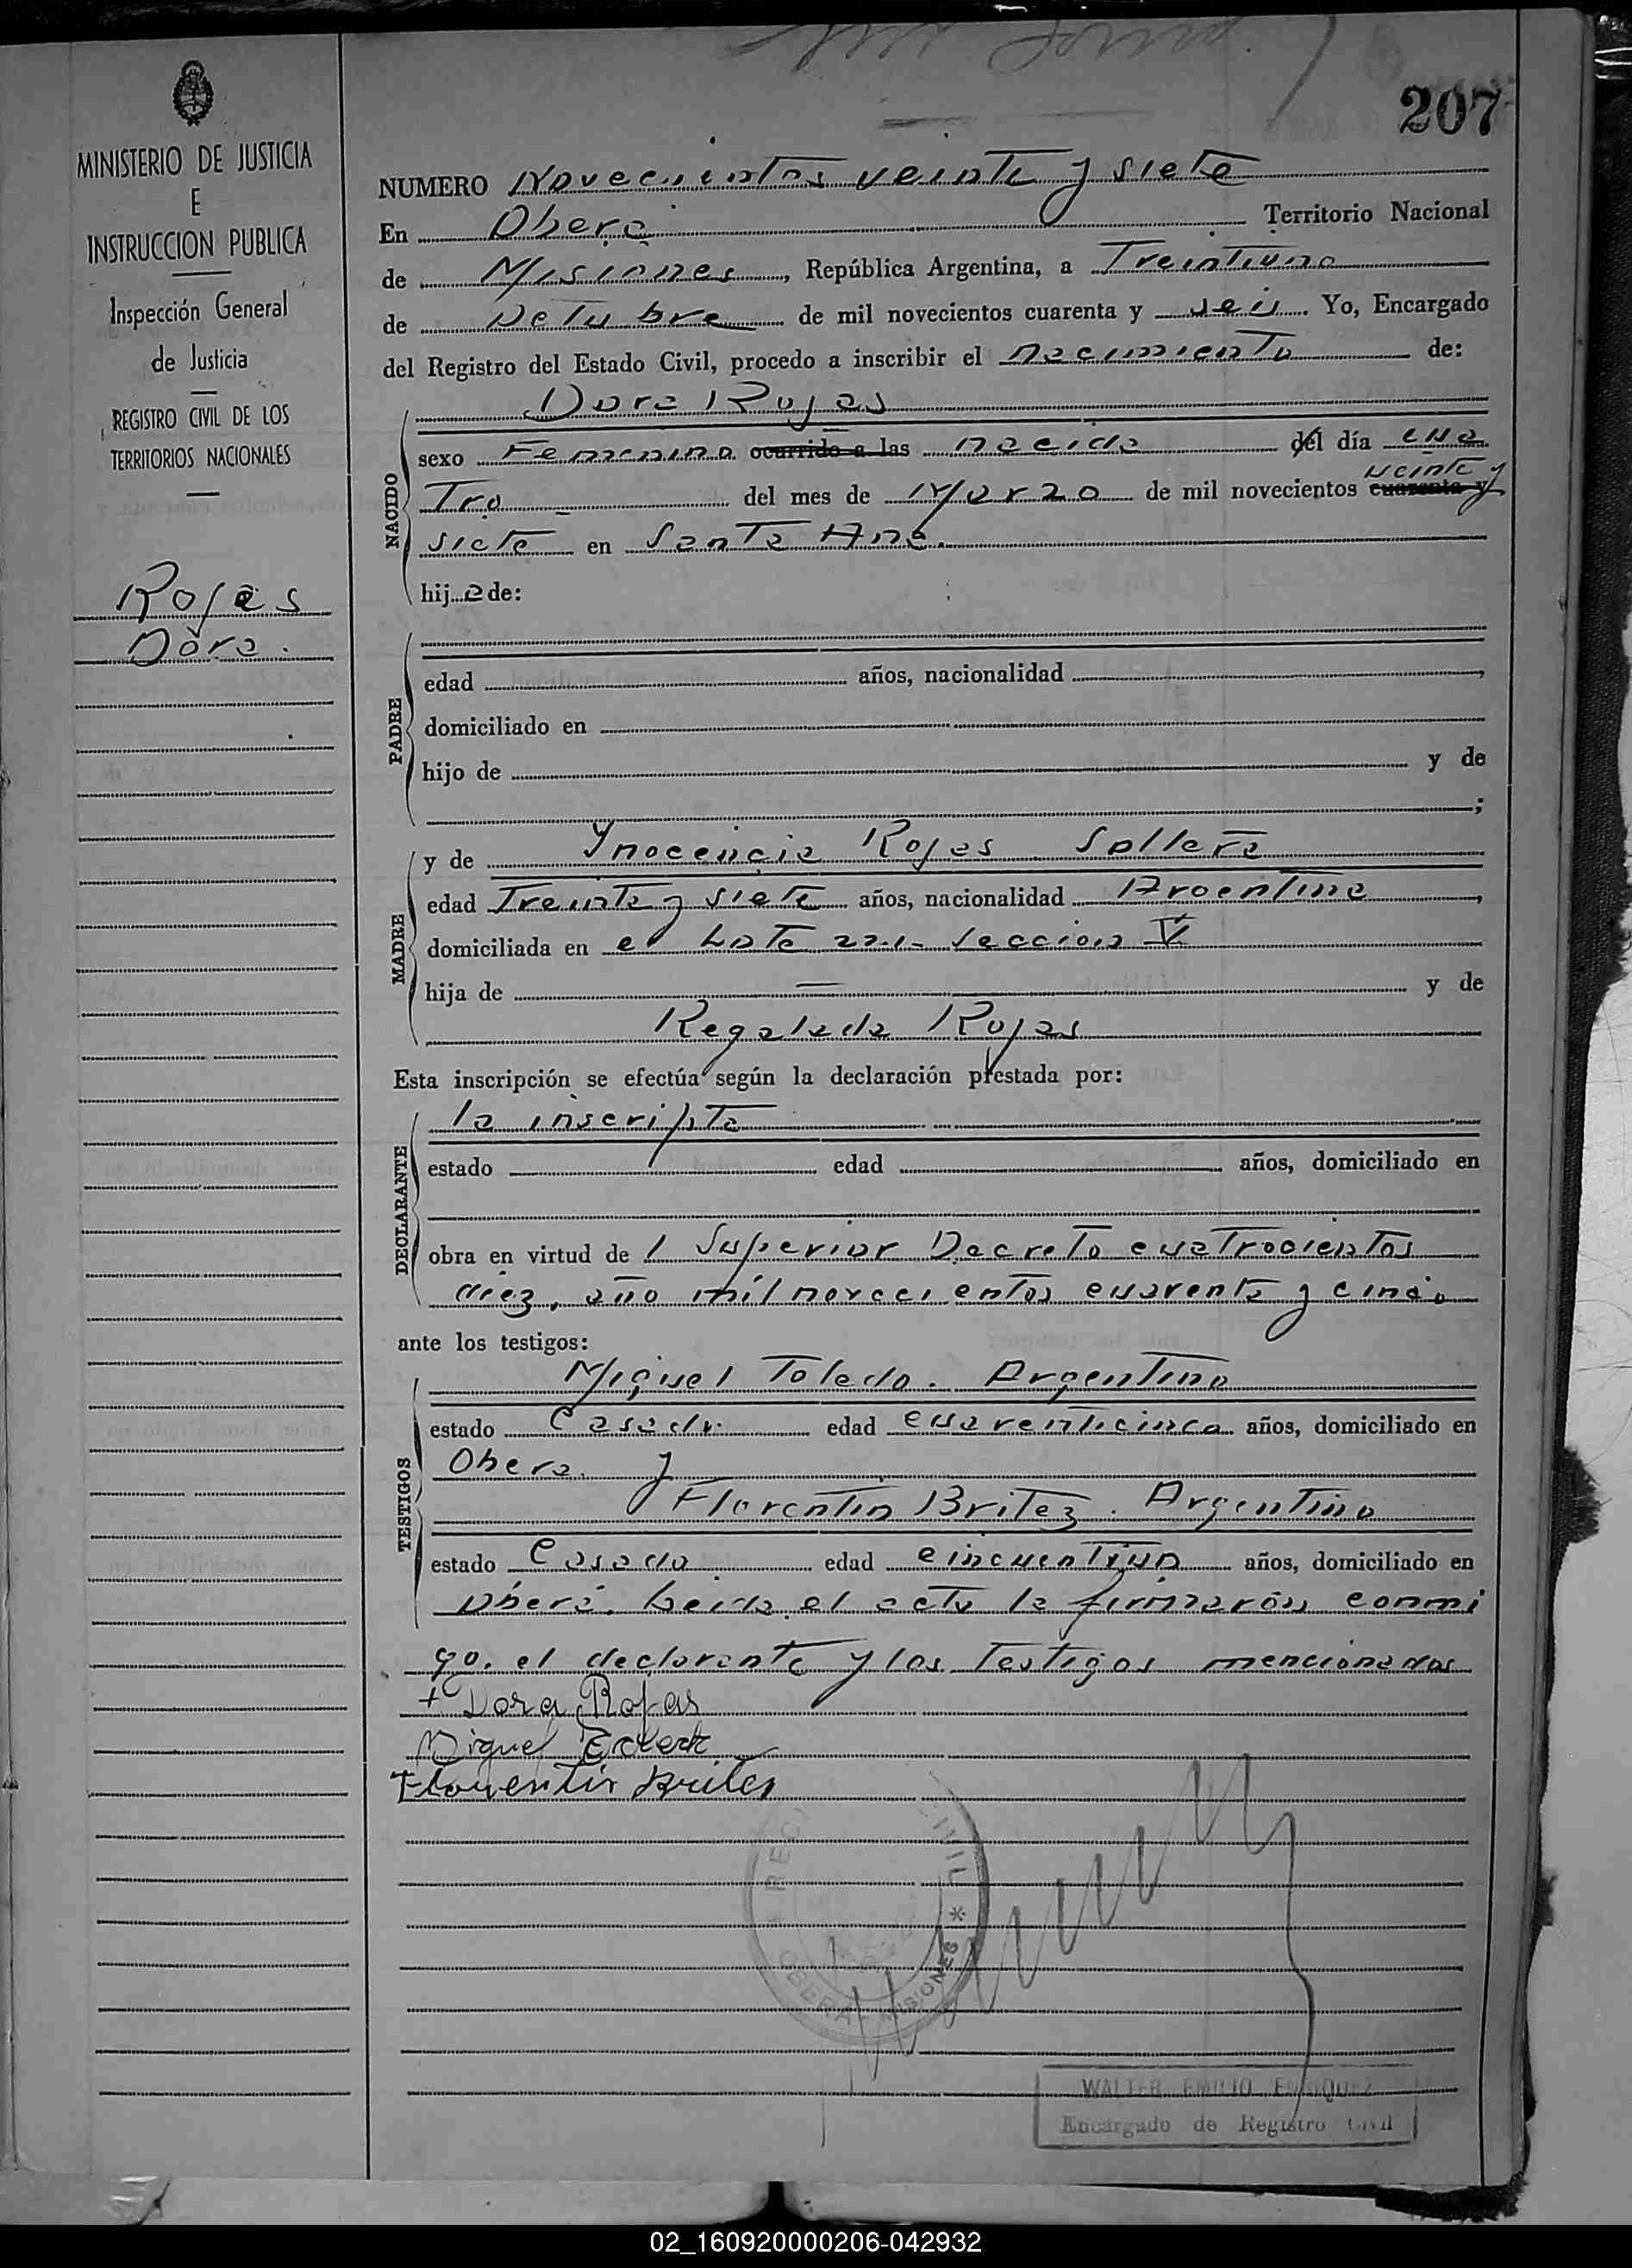 207
MINISTERIO DE JUSTICIA
E
INSTRUCCION PUBLICA
Inspección General
de Justicia
REGISTRO CIVIL DE LOS
TERRITORIOS NACIONALES
Rojas
Dora.
NUMERO Novecientos veinte y siete
En Oberá Territorio Nacional
de Misiones, República Argentina, a Treintiuno
de Octubre de mil novecientos cuarenta y seis. Yo, Encargado
del Registro del Estado Civil, procedo a inscribir el nacimiento de:
NACIDO
Dora Rojas
sexo Femenino ocurrido a las nacida del día cua
veinte y
tro del mes de Marzo de mil novecientos cuarenta y
siete en Santa Ana.
hija de:
PADRE
edad años, nacionalidad
domiciliado en
hijo de y de
;
MADRE
y de Ynocencia Rojas Soltera
edad Treinta y siete años, nacionalidad Argentina
domiciliada en el Lote 221 Seccion V
hija de — y de
Regalada Rojas
Esta inscripción se efectúa según la declaración prestada por:
DECLARANTE
la inscripta
estado edad años, domiciliado en
obra en virtud de l Superior Decreto cuatrocientos
diez, año mil novecientos cuarenta y cinco
ante los testigos:
TESTIGOS
Miguel Toledo. Argentino
estado Casado edad cuarenticinco años, domiciliado en
Obera. y
Florentin Britez. Argentino
estado Casado edad cincuentiun años, domiciliado en
Oberá. Leida el acta la firmarón conmi
go, el declarante y los testigos mencionados
+ Dora Rojas
Miguel
Florentin Britez
REG CIVIL * OBERA - MISIONES *
WALTER EMILIO ENRIQUEZ
Encargado de Registro Civil
02_160920000206-042932